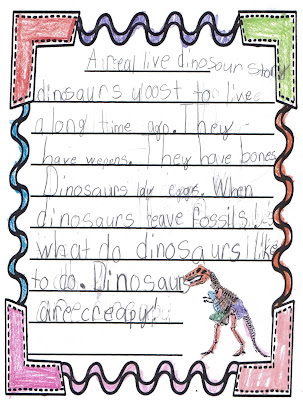 A real live dinosaur story
dinosaurs yoost to live
a long time ago. They
have wepens. They have bones
Dinosaurs lay eggs. When
dinosaurs leave fossils!
What do dinosaurs like
to do. Dinosaurs
are creapy!